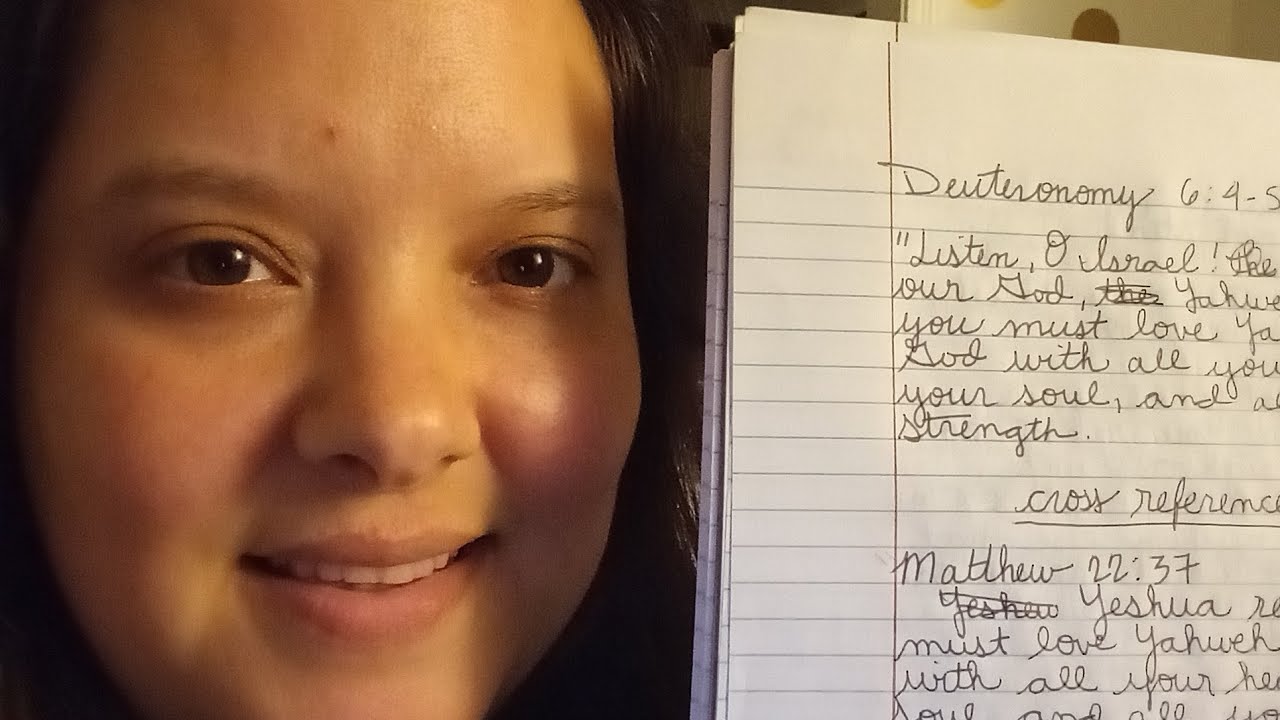 Deuteronomy 6:4-5
"Listen, O Israel! the
our God, the Yahwe
you must love Ya
God with all you
your soul, and al
strength.
cross referenc
Matthew 22:37
Yeshew Yeshua re
must love Yahweh
with all your hea
soul and all yo